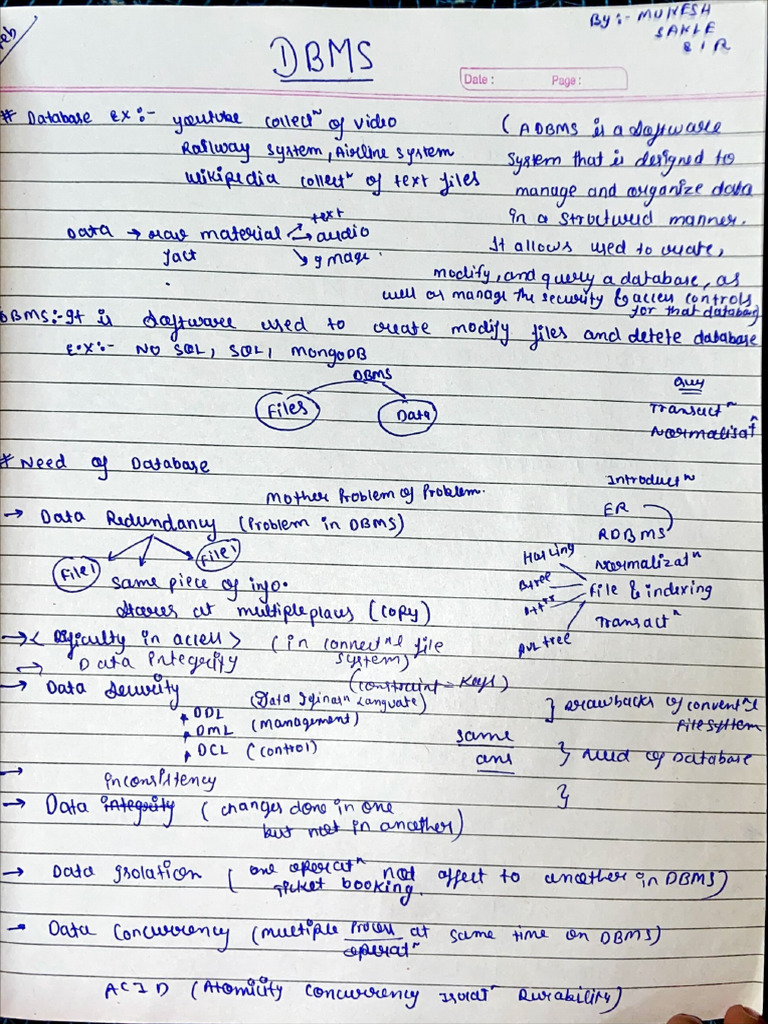 By:- MUKESH
SAKLE
SIR
DBMS
Date :
Page :
# Database Ex:- youtube collectn of video
Railway system, Airline system
Wikipedia collectn of text files
(A DBMS is a software
system that is designed to
manage and organize data
in a structured manner.
It allows used to create,
modify, and query a database, as
well as manage the security & access controls
for that database)
Data → raw material → text
audio
image
fact
DBMS:- It is software used to create modify files and detete database
Ex:- NO SQL, SQL, MongoDB
DBMS
Files
Data
Transactn
Normalisatn
# Need of Database
Mother Problem of Problem.
→ Data Redundancy (Problem in DBMS)
File1
File1
same piece of info.
stores at multiple places (copy)
Introductn
ER
RDBMS
Normalizatn
File & indexing
Hashing
Btree
AVL tree
Transactn
→ < Difficulty in access > (in connectnl file
system)
⇒ Data Integrity
(constraint = Keys)
→ Data Security
(Data Definasn Languate)
DDL
DML (management)
DCL (control)
} Drawbacks of conventnl
File System
same
ans
} need of Database
}
→
inconsistency
→ Data integrity (changes done in one
but not in another)
→ Data Isolation (one operatn not affect to another in DBMS)
Ticket booking.
→ Data Concurrency (multiple Process at same time on DBMS)
operatn
ACID (Atomicity Concurrency Isolatn Durability)